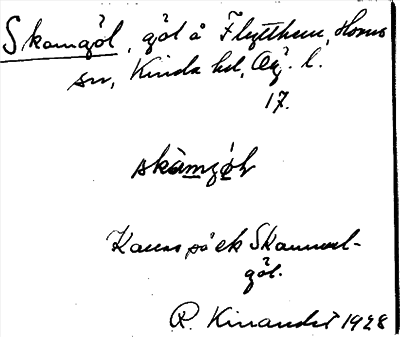 Skamgöl, göl å Flytthem, Horns
sn, Kinda hd, Ög. l.
17.
skàmgöl
Kanss på ek Skammel-
göl.
R. Kinander 1928